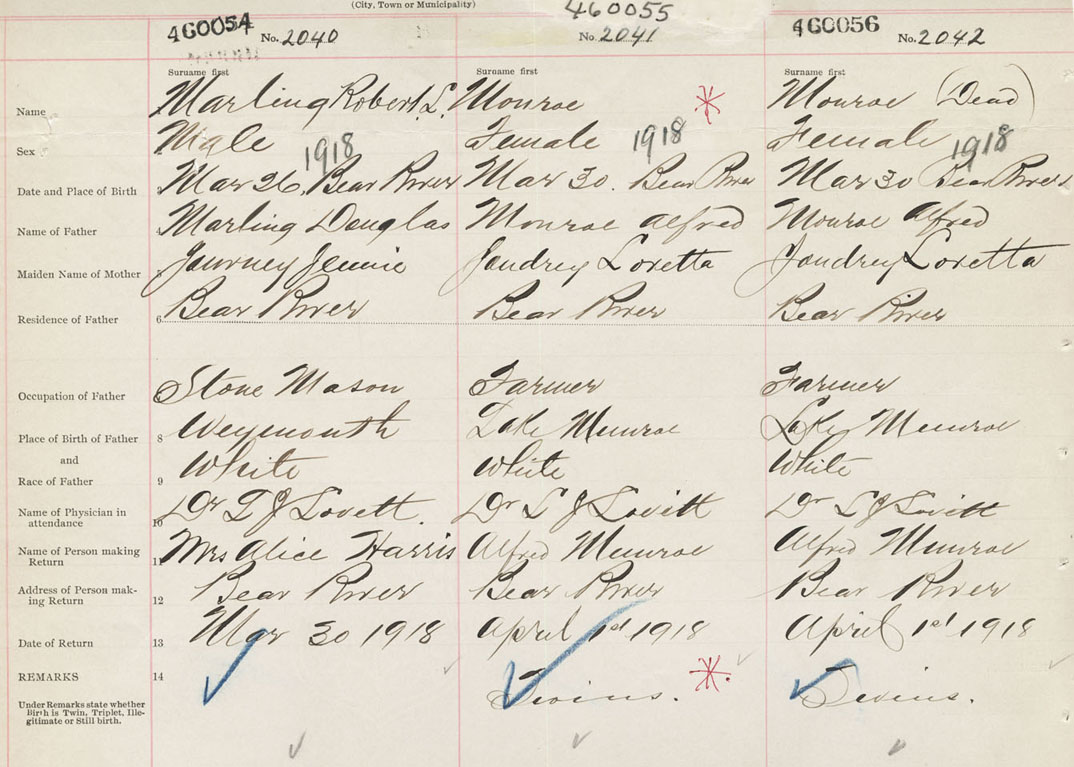 (City, Town or Municipality)
460054 No. 2040 460055 No 2041 460056 No. 2042
Surname first Surname first Surname first
Name Marling Robert L. Monroe Monroe (Dead)
Sex Male 1918 Female 1918 Female 1918
Date and Place of Birth Mar 26, Bear River Mar 30. Bear River Mar 30 Bear River
Name of Father 4 Marling Douglas Monroe Alfred Monroe Alfred
Maiden Name of Mother 5 Jennie Loretta Loretta
Residence of Father 6 Bear River Bear River Bear River
Occupation of Father Stone Mason Farmer Farmer
Place of Birth of Father 8 Weymouth Lake Munroe Lake Munroe
and
Race of Father 9 White White White
Name of Physician in
attendance 10 Dr L J Lovett. Dr L J Lovitt Dr L J Lovitt
Name of Person making
Return 11 Mrs Alice Harris Alfred Munroe Alfred Munroe
Address of Person mak-
ing Return 12 Bear River Bear River Bear River
Date of Return 13 Mar 30 1918 April 1st 1918 April 1st 1918
REMARKS 14 Twins. Twins.
Under Remarks state whether
Birth is Twin, Triplet, Ille-
gitimate or Still birth.